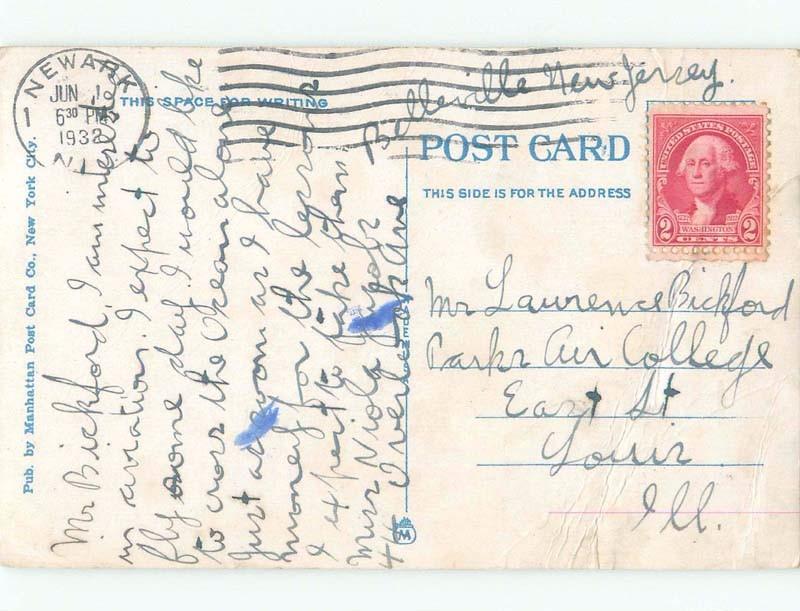 NEWARK
1
JUN 10
6 30 PM
1932
N.J.
THIS SPACE FOR WRITING
Belleville New Jersey.
POST CARD
THIS SIDE IS FOR THE ADDRESS
UNITED STATES POSTAGE
2 WASHINGTON 2
CENTS
Pub. by Manhattan Post Card Co., New York City.
Mr Bickford, I am interested
in aviation. I expect to
fly some day. I would like
to cross the Ocean alone
just as soon as I have
money for the lessons
I expect to take them
Miss Viola
44
Mr Lawrence Bickford
Parks Air College
East St
Louis
Ill.
M